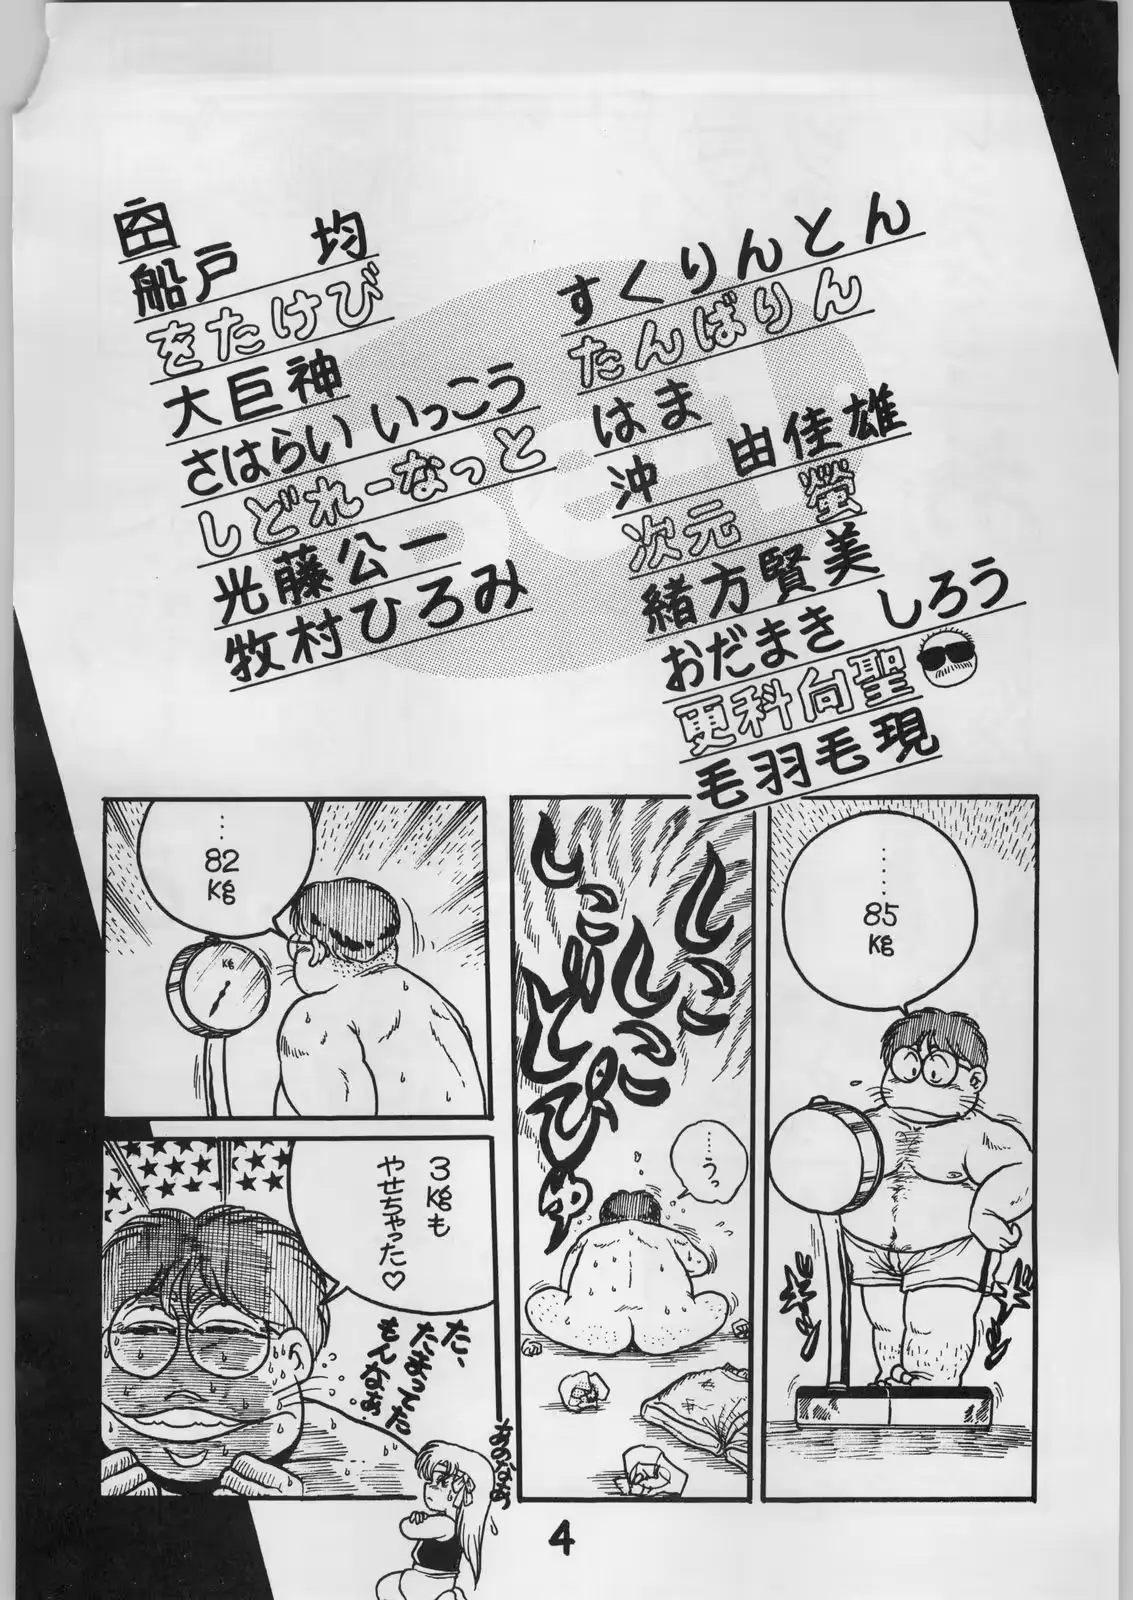 船戸 均
をたけび
大巨神
さはらい いっこう
しどれーなっと
光藤公一
牧村ひろみ
すくりんとん
たんばりん
はま
沖 由佳雄
次元 蛍
緒方賢美
おだまき しろう
更科向聖
毛羽毛現
……
85
kg
しこ
しこ
しこ
しこ
……うっ
…
82
kg
kg
3kgも
やせちゃった♡
た、
たまってた
もんなぁ
あのなぁっ
4